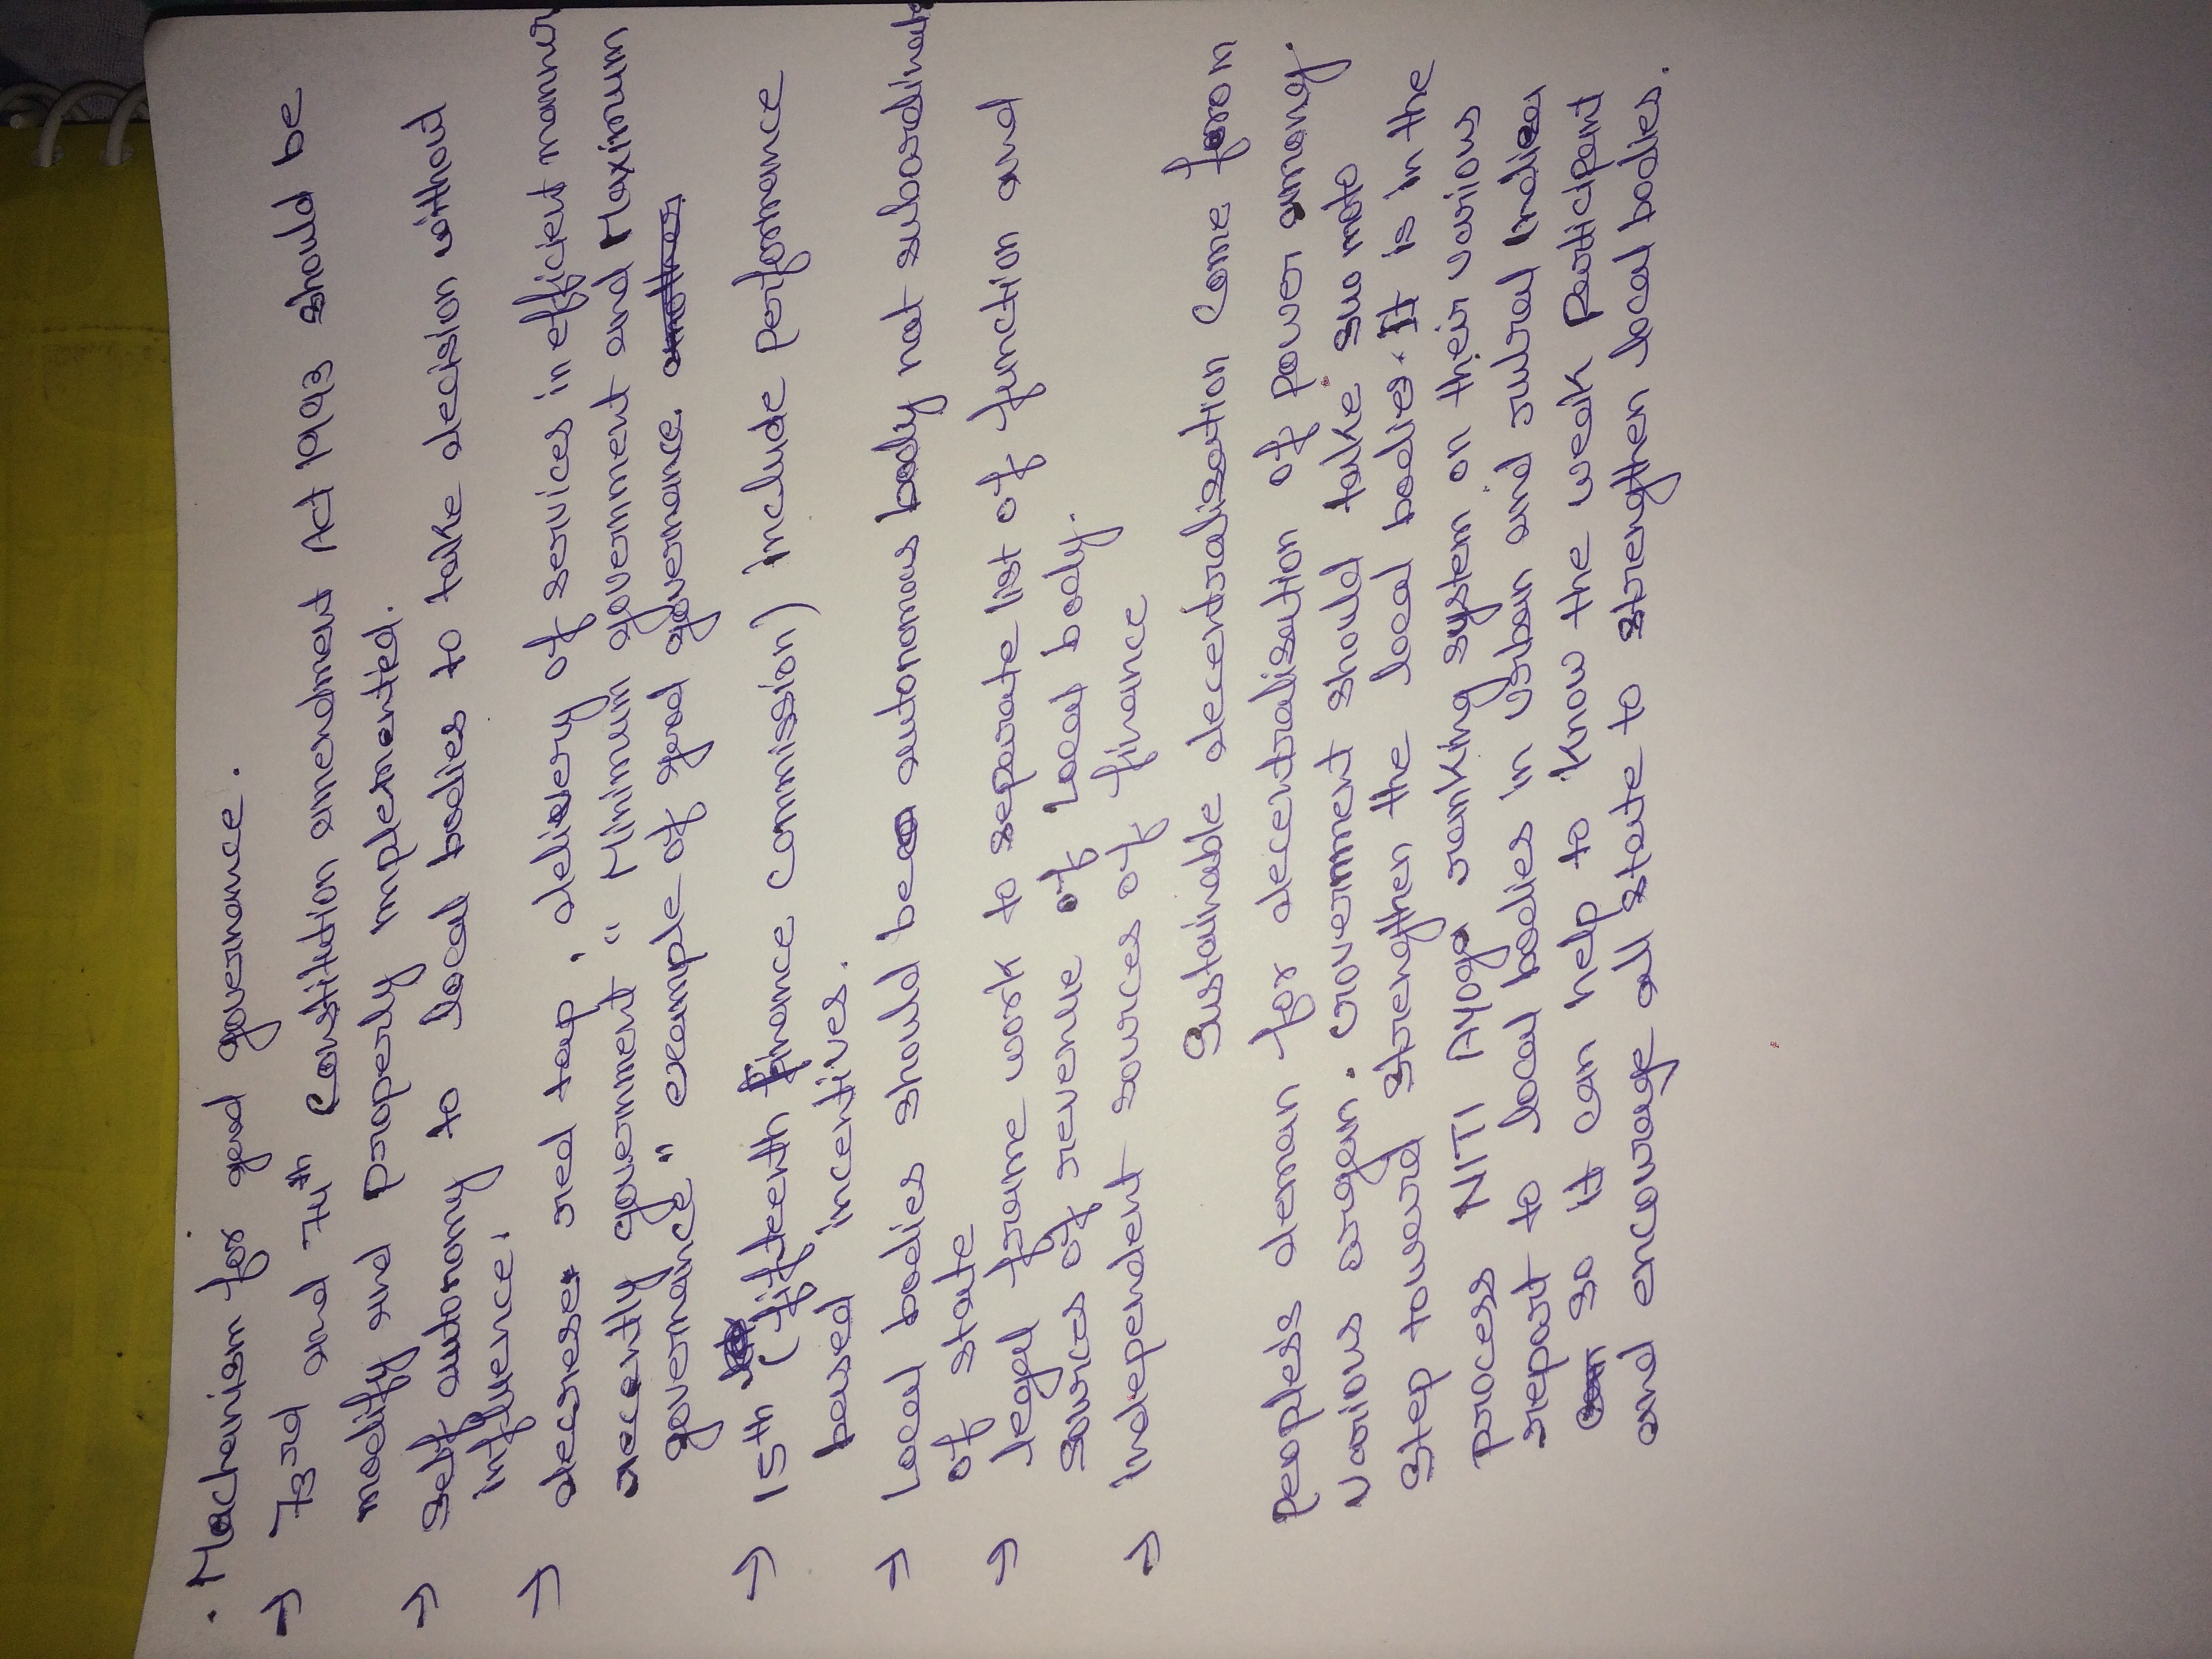 . Machanism for good governance.
→ 73rd and 74th Constitution amendment Act 1993 should be
modify and properly implemented.
→ Self autonomy to local bodies to take decision without
influence.
→ decrese red tap, delievery of services in efficient manner
recently government " Minimum government and Maximum
governance" example of good governance.
→ 15th (fifteenth Finance Commission) include performance
based incentives.
→ Local bodies should be autonomous body not subordinate
of state
→ legal frame work to seperate list of function and
sources of revenue of Local body.
→ Independent sources of finance
Sustainable decentralisation come from
peoples deman for decentralisation of power among
various organ. Government should take suo moto
step toward strengthen the local bodies. It is in the
process NITI AYOga ranking system on their various
report to local bodies in urban and rural Indies
so it can help to know the weak participant
and encourage all state to strengthen local bodies.